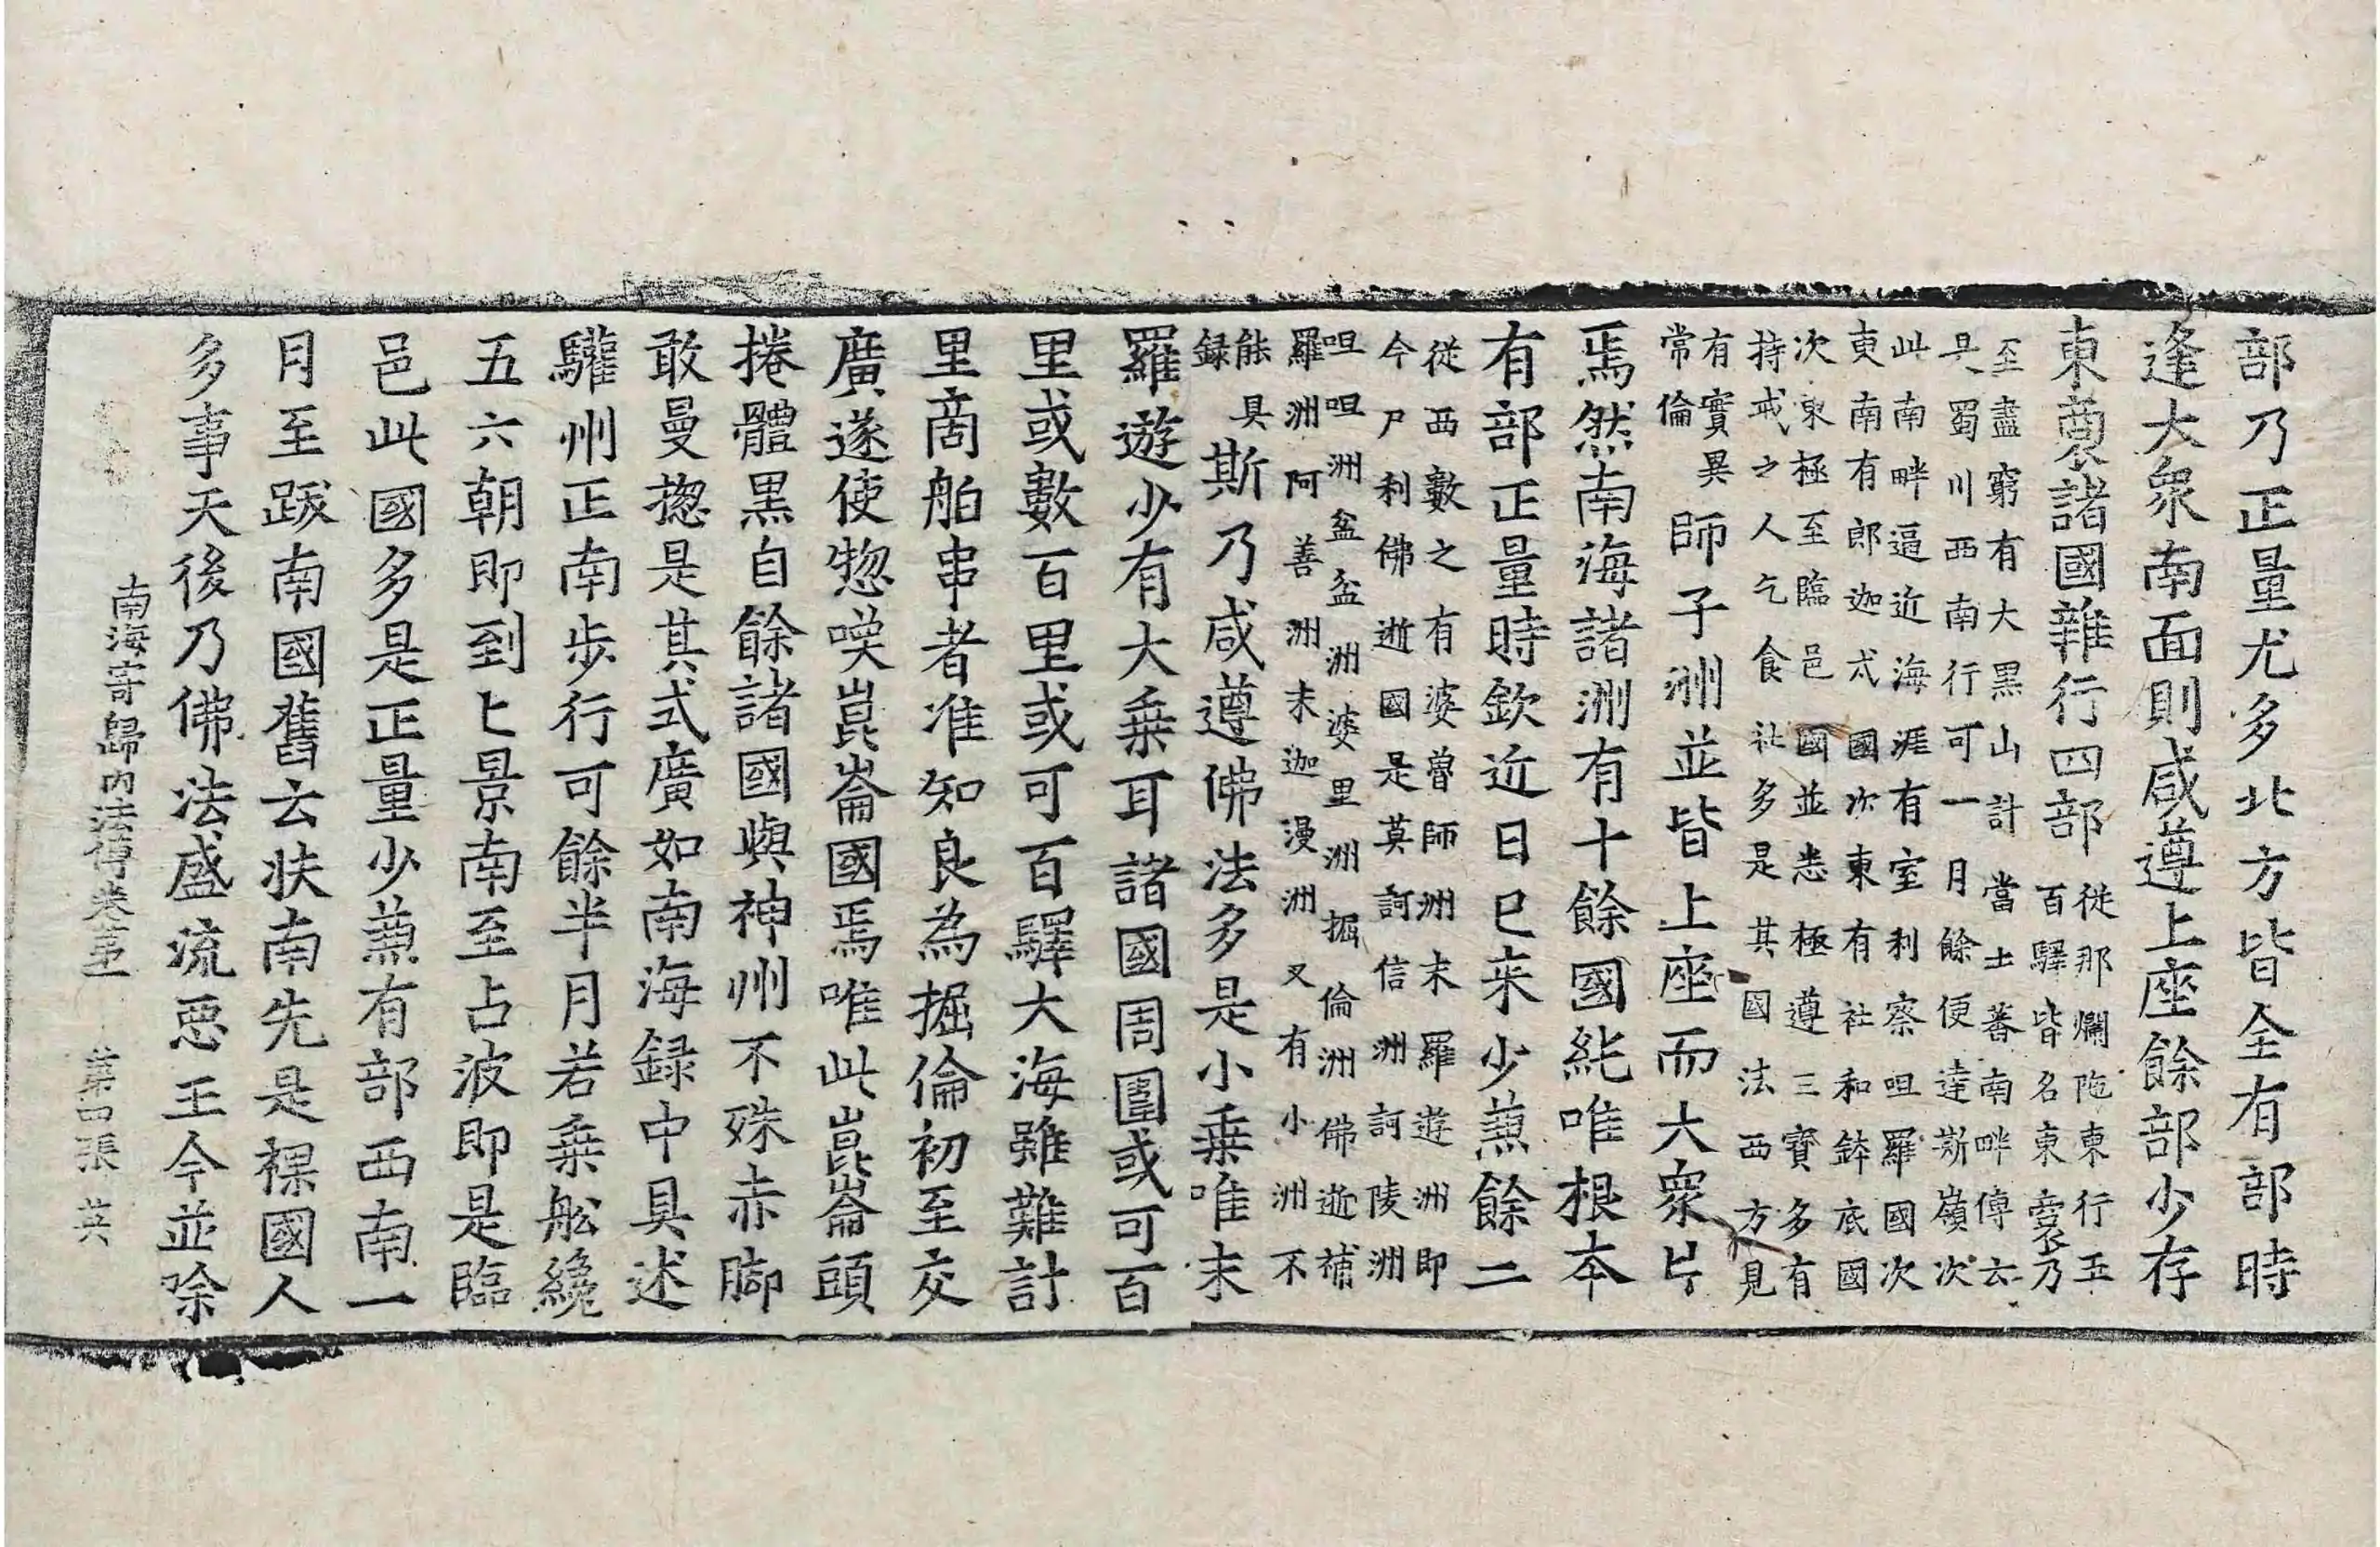 部乃正量尤多北方皆全有部時
逢大衆南面則咸遵上座餘部少存
東裔諸國雜行四部
從那爛陁東行五
百驛皆名東裔乃
至盡窮有大黑山計當土蕃南畔傳云
是蜀川西南行可一月餘便達斯嶺次
此南畔逼近海涯有室利察呾羅國次
東南有郎迦戍國次東有社和鉢底國
次東極至臨邑國並悉極遵三寳多有
持戒之人乞食杜多是其國法西方見
有實異
常倫
師子洲並皆上座而大衆片
焉然南海諸洲有十餘國純唯根本
有部正量時欽近日已来少蒹餘二
從西數之有婆魯師洲末羅遊洲即
今尸利佛逝國是莫訶信洲訶陵洲
呾呾洲盆盆洲婆里洲掘倫洲佛逝補
羅洲阿善洲末迦漫洲又有小洲不
能具
録
斯乃咸遵佛法多是小乗唯末
羅遊少有大乗耳諸國周圍或可百
里或數百里或可百驛大海雖難計
里商舶串者准知良為掘倫初至交
廣遂使惣嘆崑崙國焉唯此崑崙頭
捲體黒自餘諸國與神州不殊赤脚
敢曼揔是其式廣如南海録中具述
驩州正南步行可餘半月若乗舩纔
五六朝即到匕景南至占波即是臨
邑此國多是正量少蒹有部西南一
月至跋南國舊云扶南先是裸國人
多事天後乃佛法盛流惡王今並除
南海寄歸内法傳卷第一　第四張　英